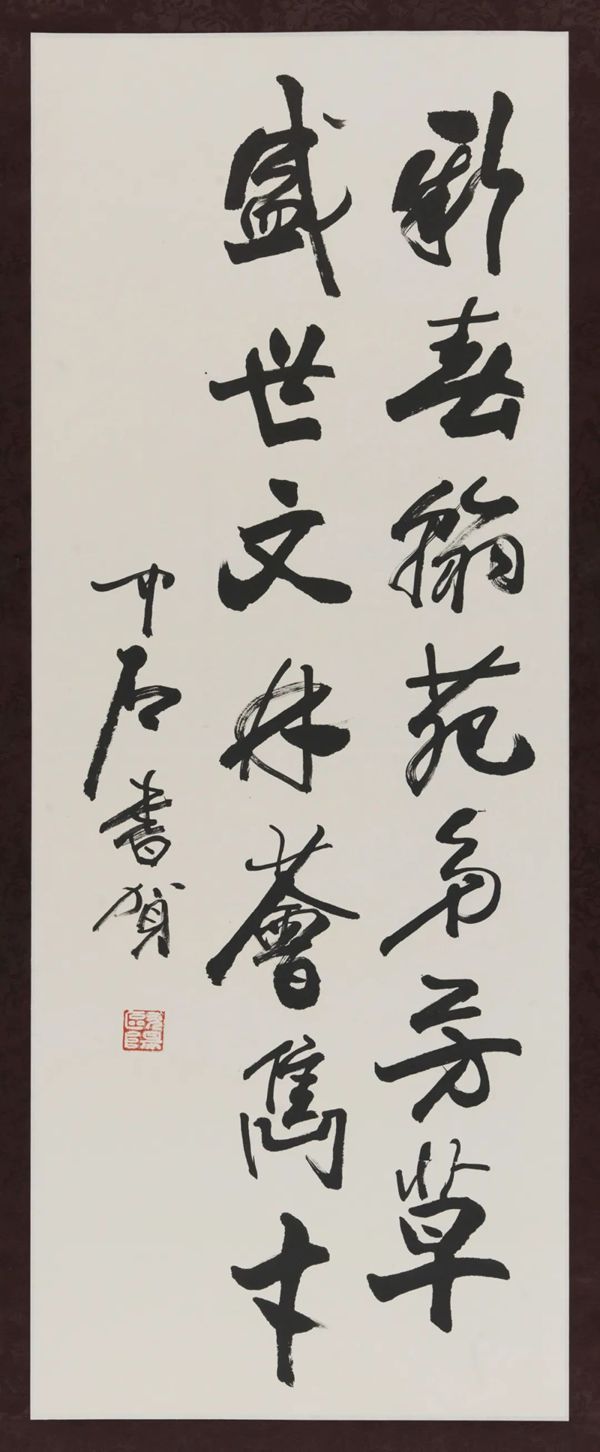 新春翰苑多芳草
盛世文林薈雋才
中石書賀